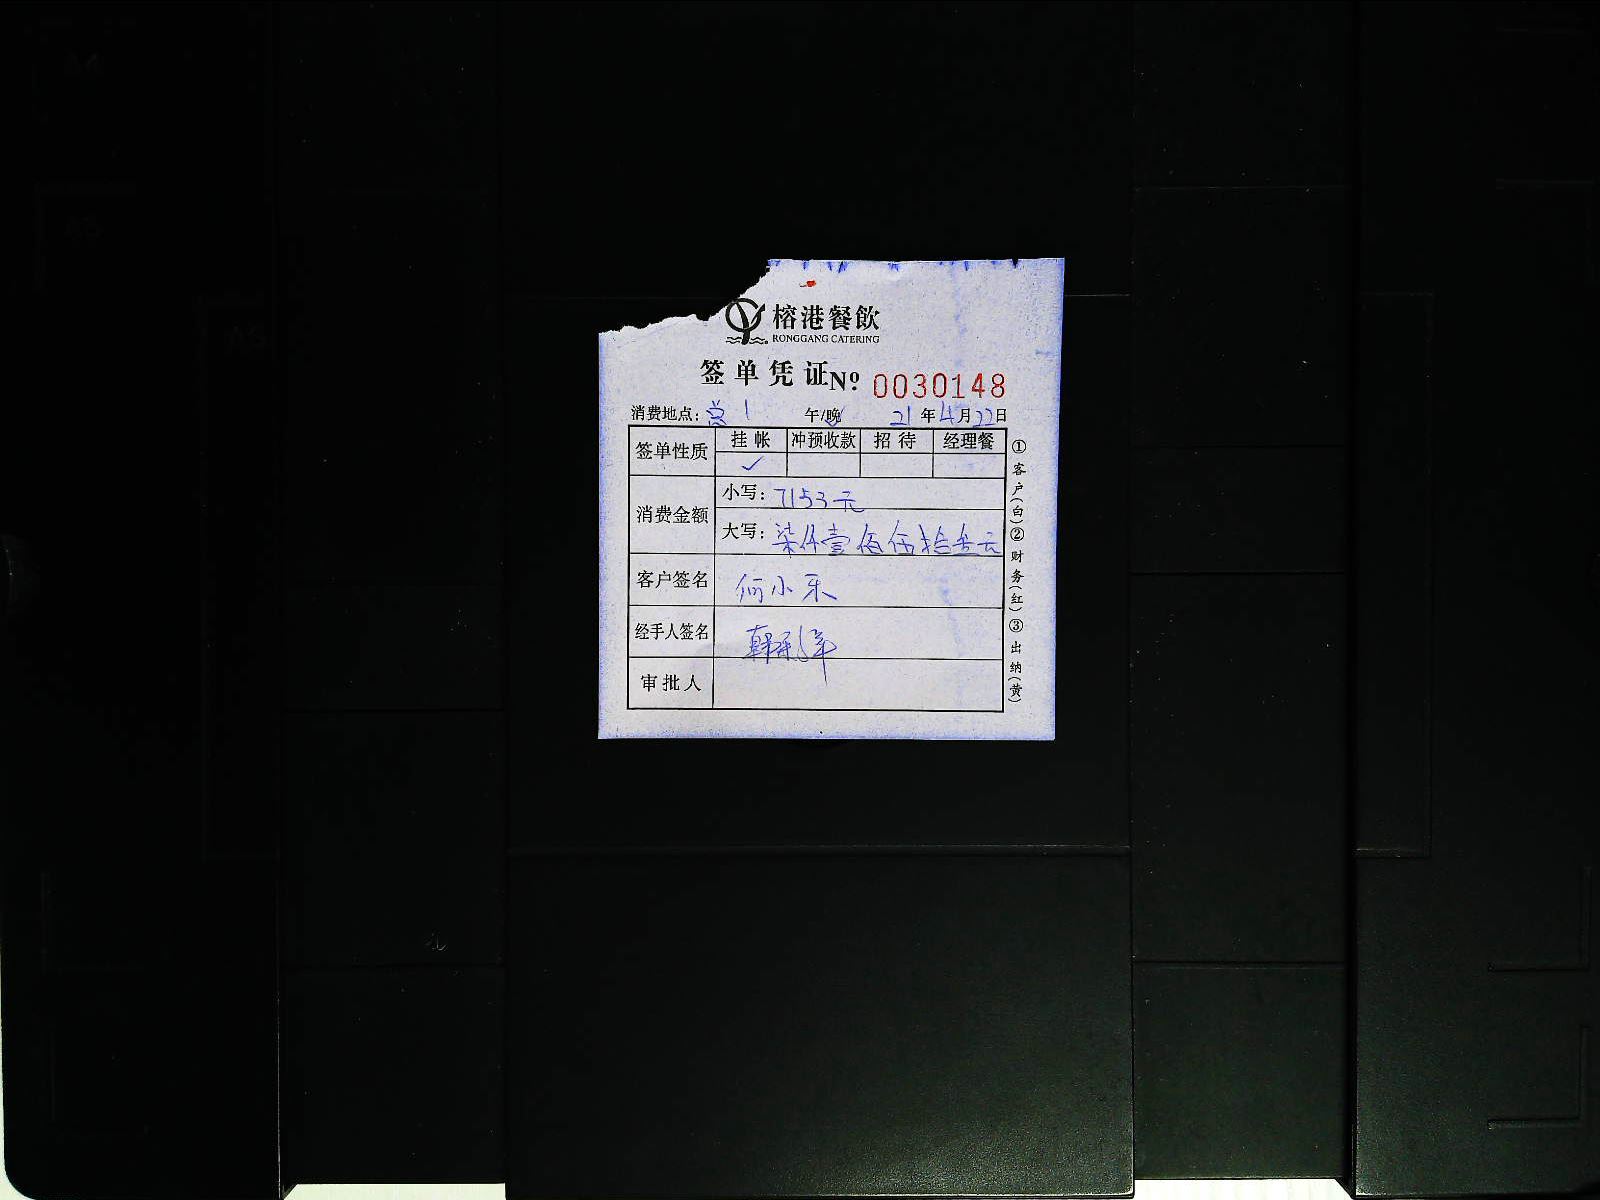 榕港餐飲
RONGGANG CATERING
签单凭证 Nº 0030148
消费地点：总1 午/晚 21年4月22日
签单性质 挂帐 冲预收款 招待 经理餐
✓
消费金额 小写：7153元
大写：柒仟壹佰伍拾叁元
客户签名 何小乐
经手人签名
审批人
①客户(白)②财务(红)③出纳(黄)
A5